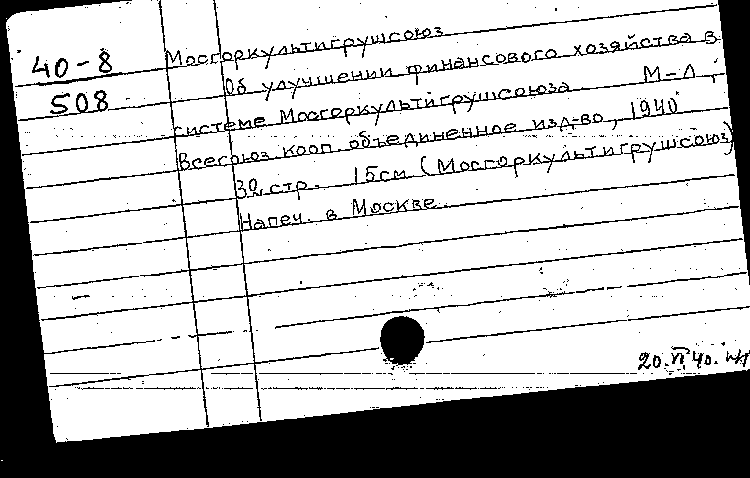 40-8
508
Мосгоркультигрушсоюз
Об улучшении финансового хозяйства в
системе Мосгоркультигрушсоюза М-Л,
Всесоюз. кооп. объединенное изд-во, 1940
32 стр. 15см (Мосгоркультигрушсоюз)
Напеч. в Москве.
20.VI 40.